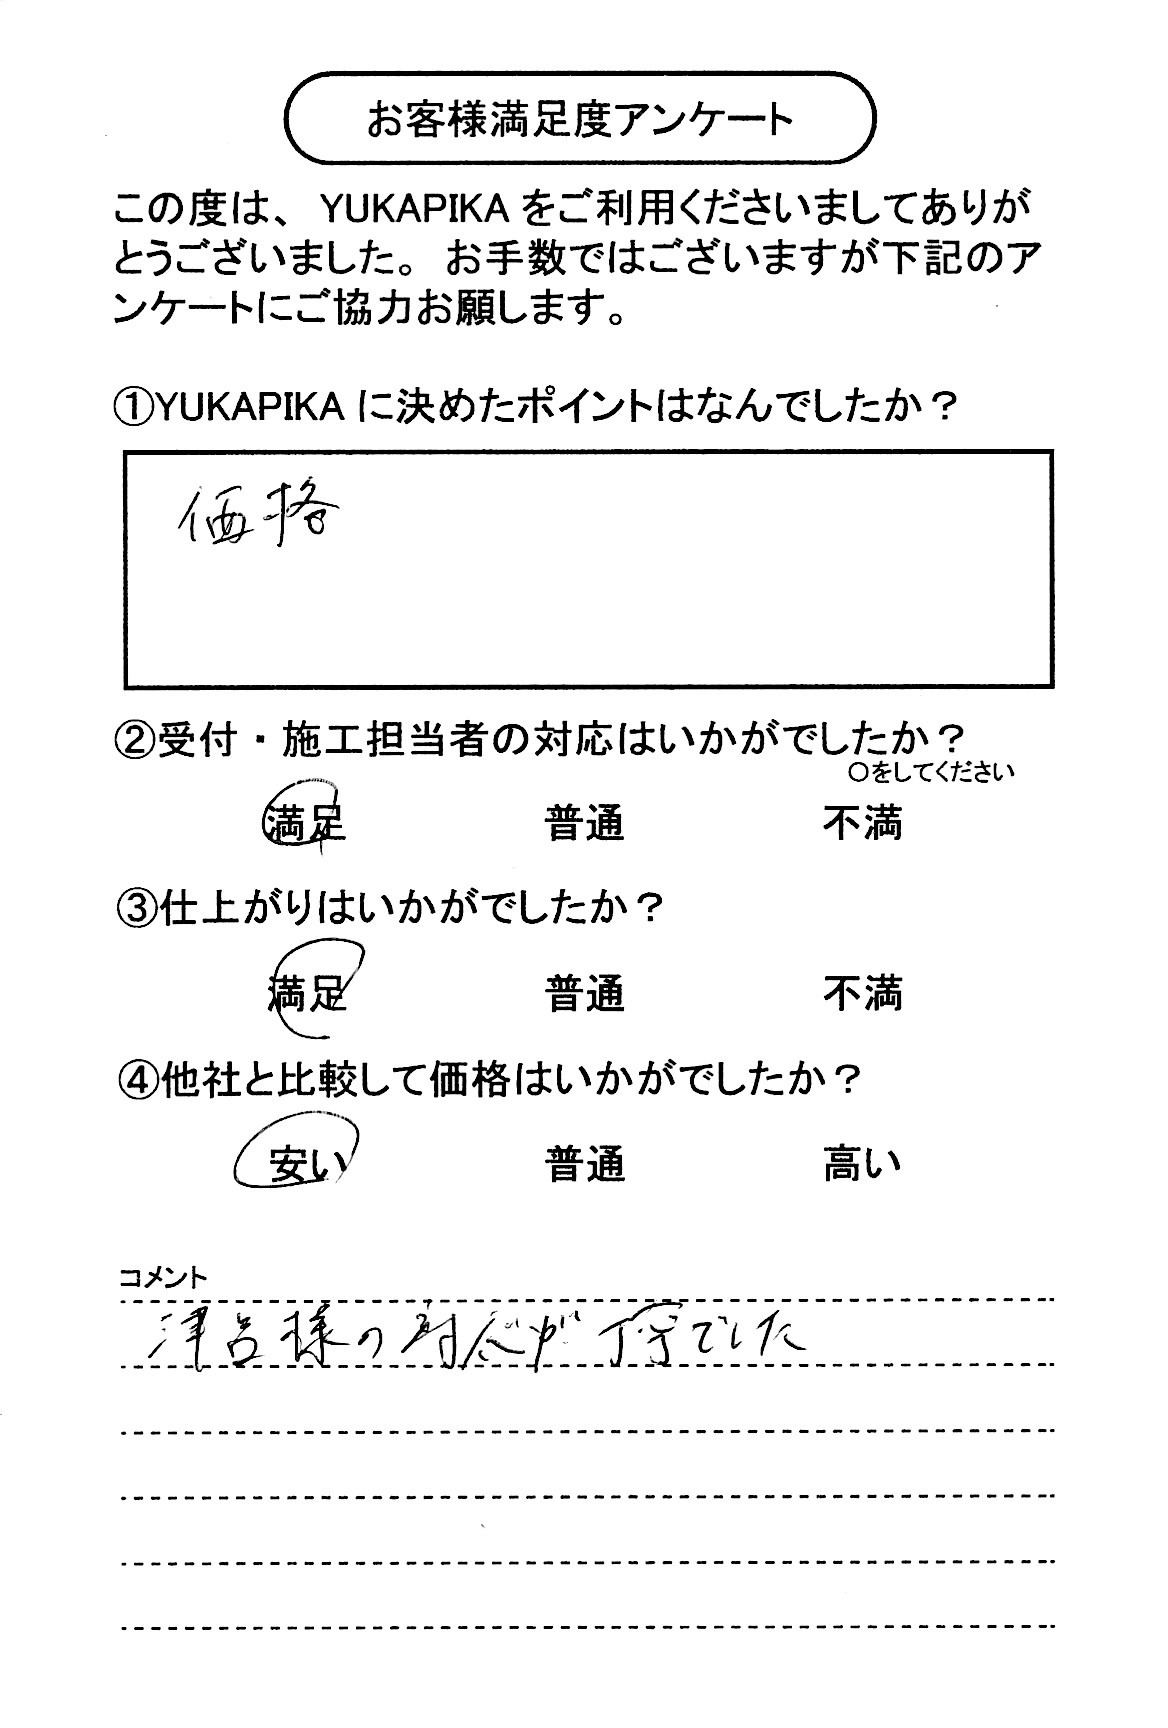 お客様満足度アンケート
この度は、YUKAPIKAをご利用くださいましてありが
とうございました。お手数ではございますが下記のア
ンケートにご協力お願します。
①YUKAPIKAに決めたポイントはなんでしたか？
価格
②受付・施工担当者の対応はいかがでしたか？
○をしてください
満足 普通 不満
③仕上がりはいかがでしたか？
満足 普通 不満
④他社と比較して価格はいかがでしたか？
安い 普通 高い
コメント
津呂様の対応が丁寧でした